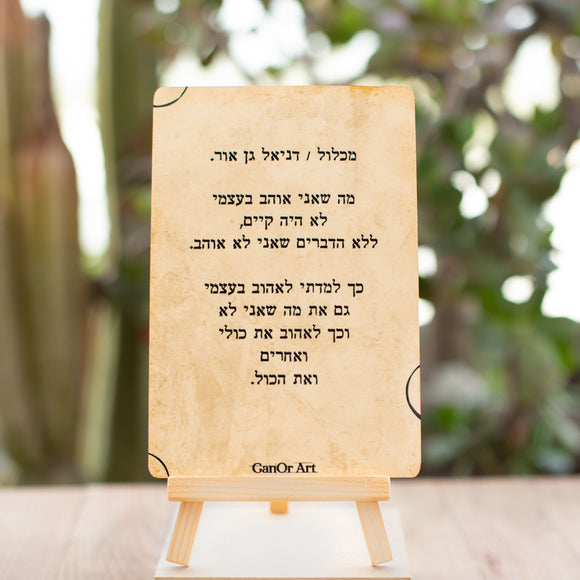 מכלול / דניאל גן אור.
מה שאני אוהב בעצמי
לא היה קיים,
ללא הדברים שאני לא אוהב.
כך למדתי לאהוב בעצמי
גם את מה שאני לא
וכך לאהוב את כולי
ואחרים
ואת הכול.
GanOr Art